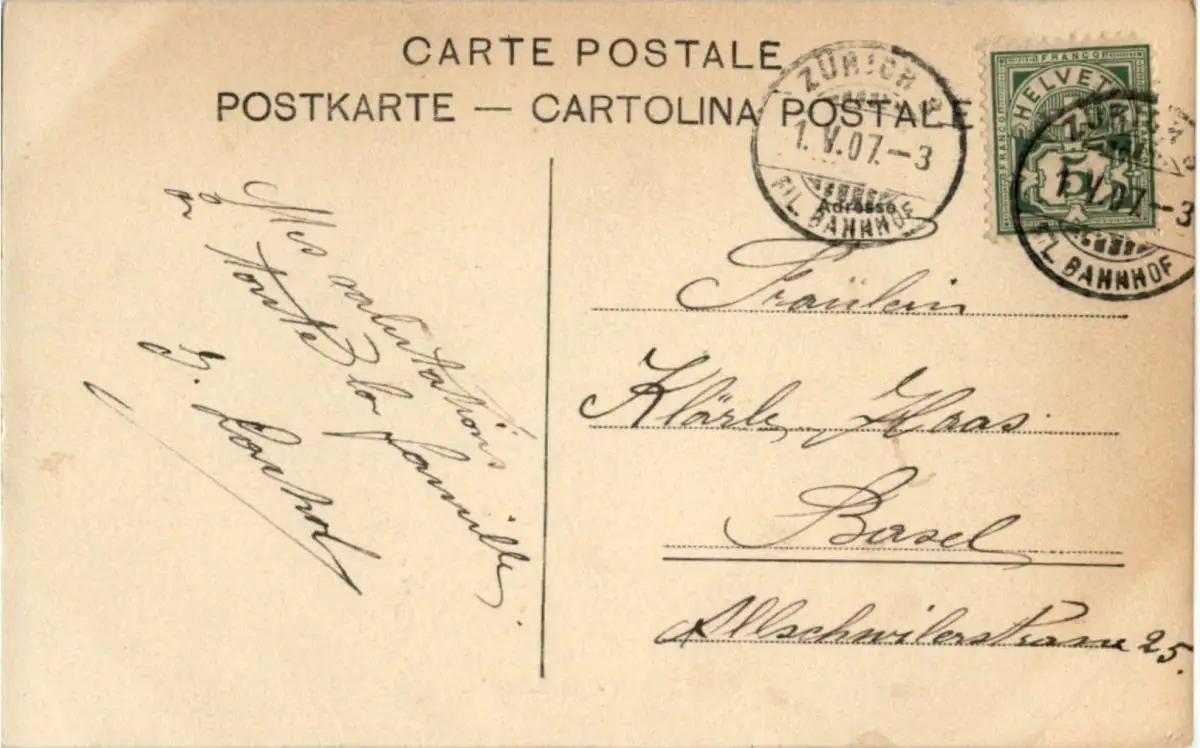 CARTE POSTALE
POSTKARTE — CARTOLINA POSTALE
ZÜRICH
1.V.07.-3
FIL. BAHNHOF
FRANCO
HELVETIA
5
ZÜRICH
1.V.07.-3
FIL. BAHNHOF
Adresse
Mes salutations
à toute la famille.
Fräulein
Klärli Haas
Basel
Allschwilerstrasse 25.